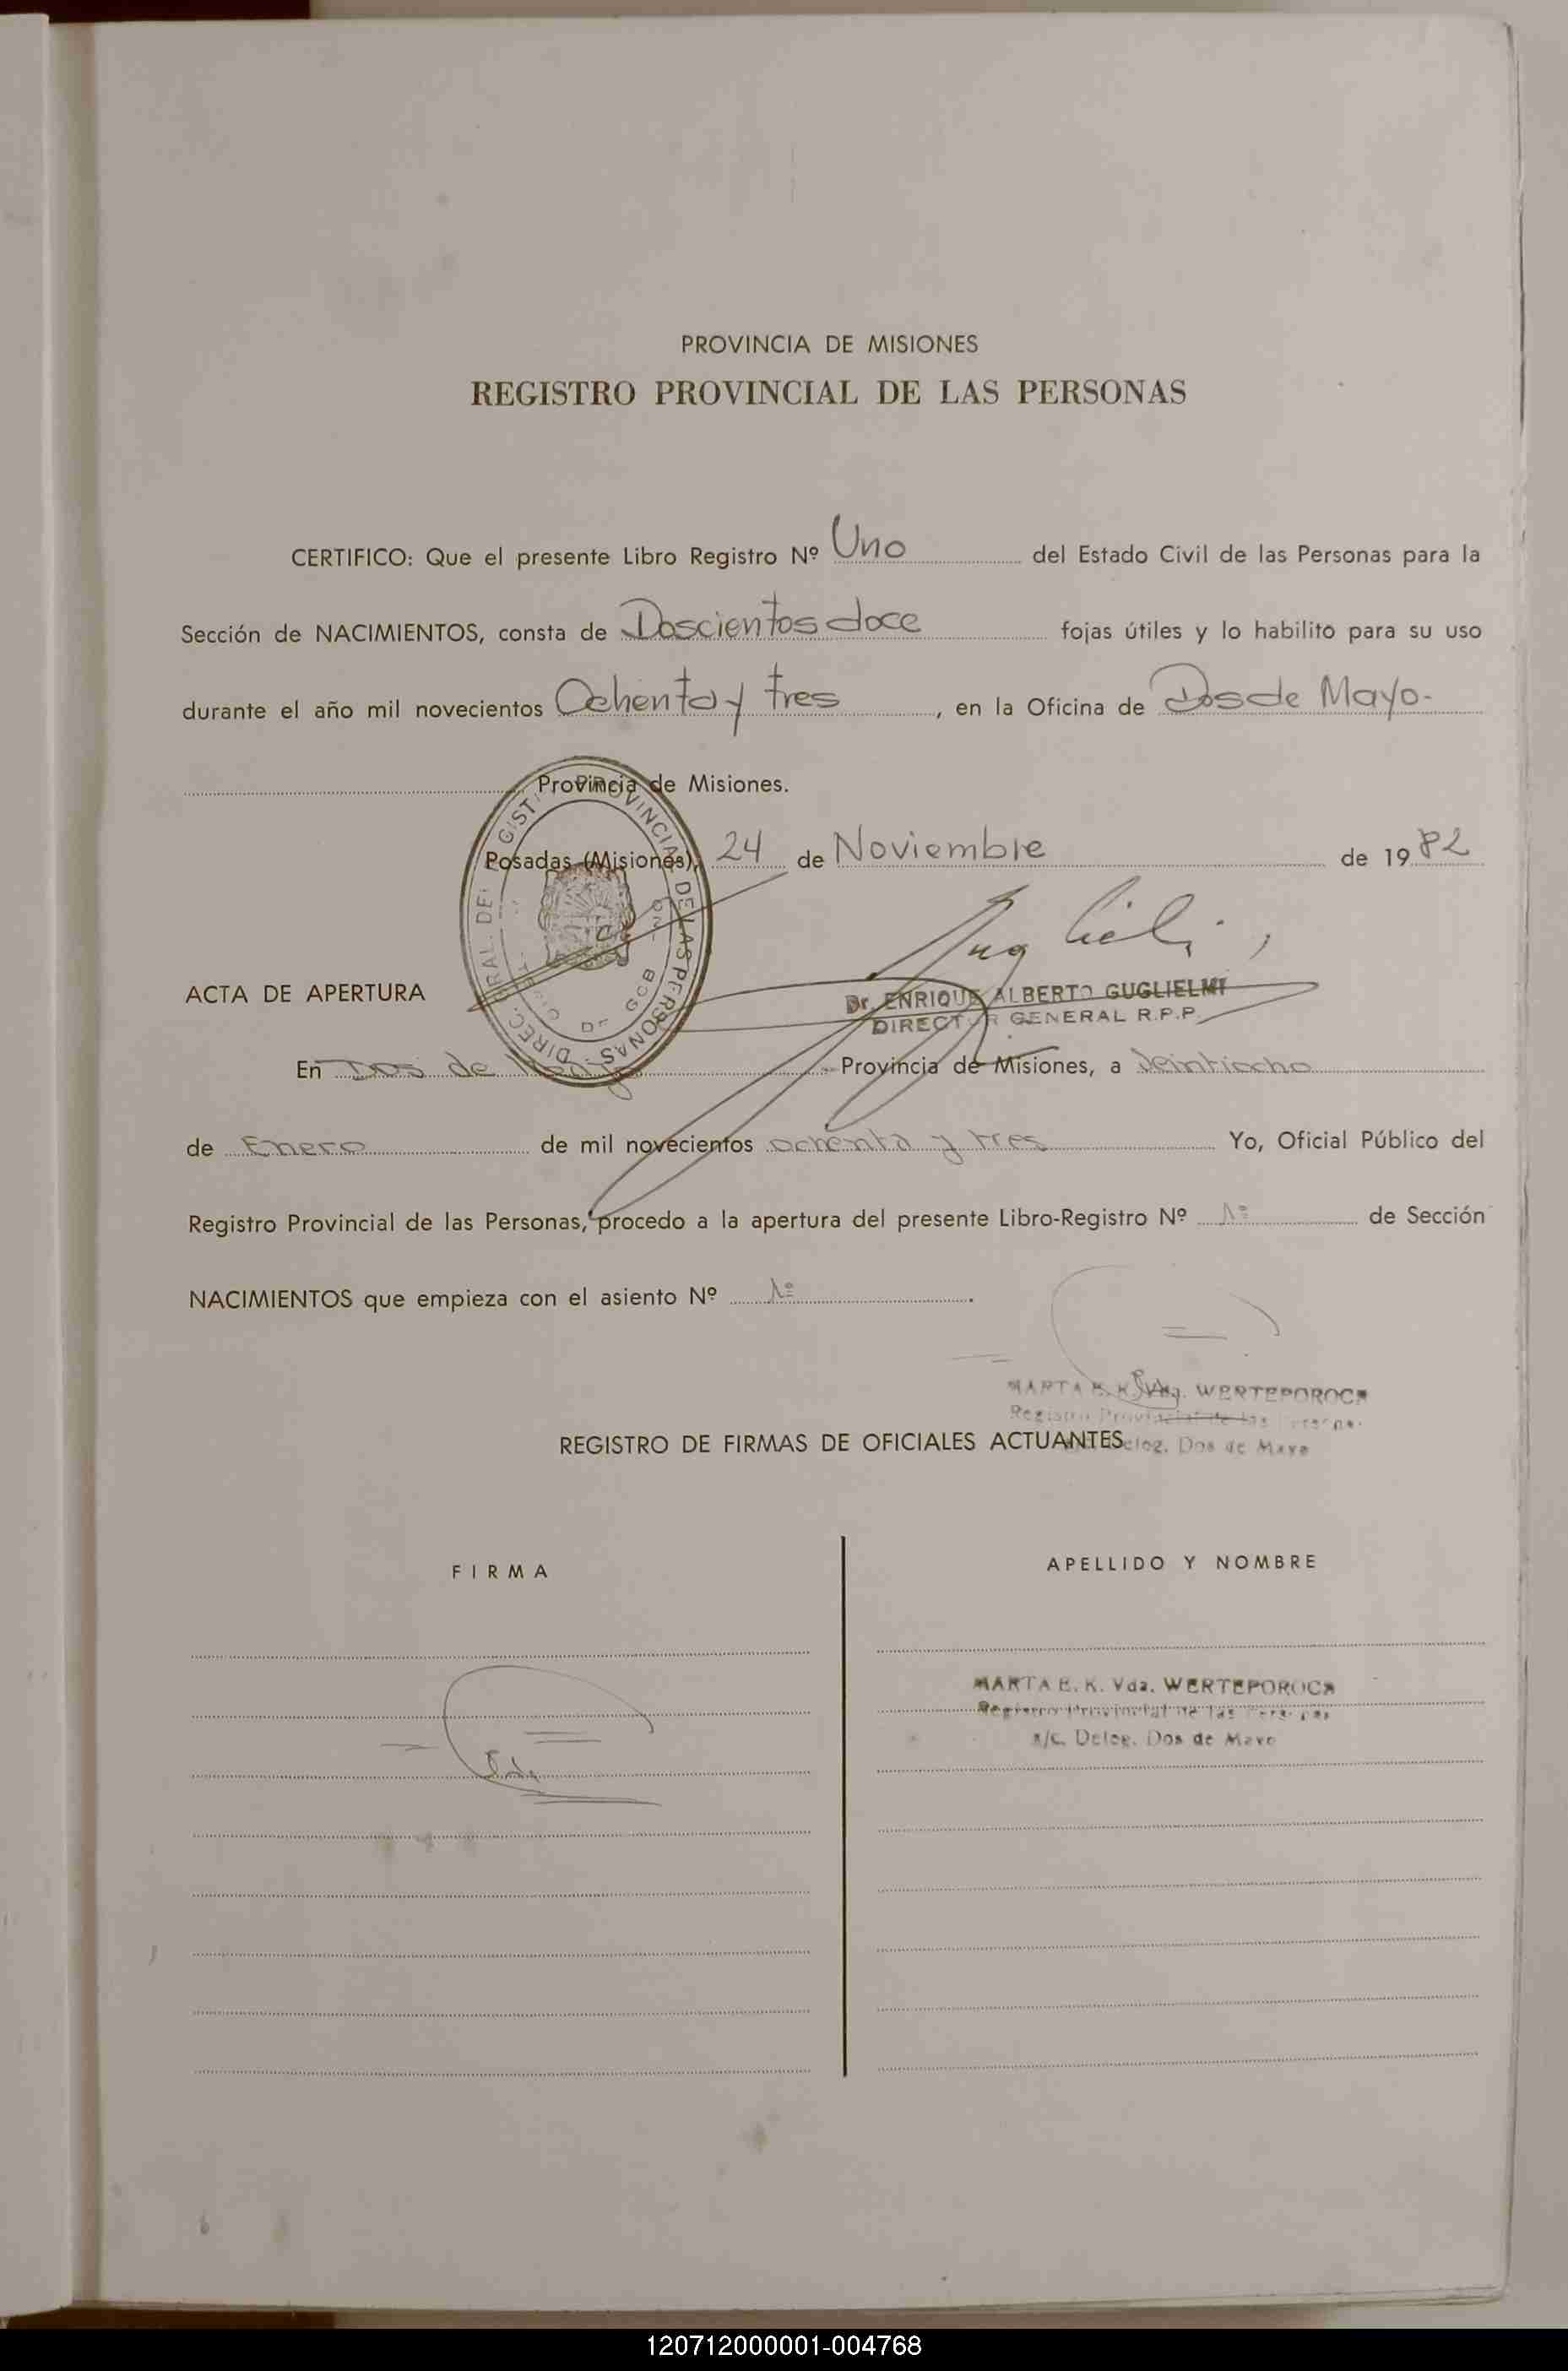 PROVINCIA DE MISIONES
REGISTRO PROVINCIAL DE LAS PERSONAS
CERTIFICO: Que el presente Libro Registro Nº Uno del Estado Civil de las Personas para la
Sección de NACIMIENTOS, consta de Doscientos doce fojas útiles y lo habilito para su uso
durante el año mil novecientos Ochenta y tres, en la Oficina de Dos de Mayo.-
Provincia de Misiones.
Posadas (Misiones), 24 de Noviembre de 1982
DIREC. GRAL. DEL REGIST. PROVINCIAL DE LAS PERSONAS
DE GOB
Dr. ENRIQUE ALBERTO GUGLIELMI
DIRECTOR GENERAL R.P.P.
ACTA DE APERTURA
En Dos de Mayo Provincia de Misiones, a Veintiocho
de Enero de mil novecientos ochenta y tres Yo, Oficial Público del
Registro Provincial de las Personas, procedo a la apertura del presente Libro-Registro Nº 1º de Sección
NACIMIENTOS que empieza con el asiento Nº 1º.
MARTA E. K. Vda. WERTEPOROCH
Registro Provincial de las Personas
Deleg. Dos de Mayo
REGISTRO DE FIRMAS DE OFICIALES ACTUANTES
FIRMA
APELLIDO Y NOMBRE
MARTA E. K. Vda. WERTEPOROCH
Registro Provincial de las Personas
a/c. Deleg. Dos de Mayo
120712000001-004768